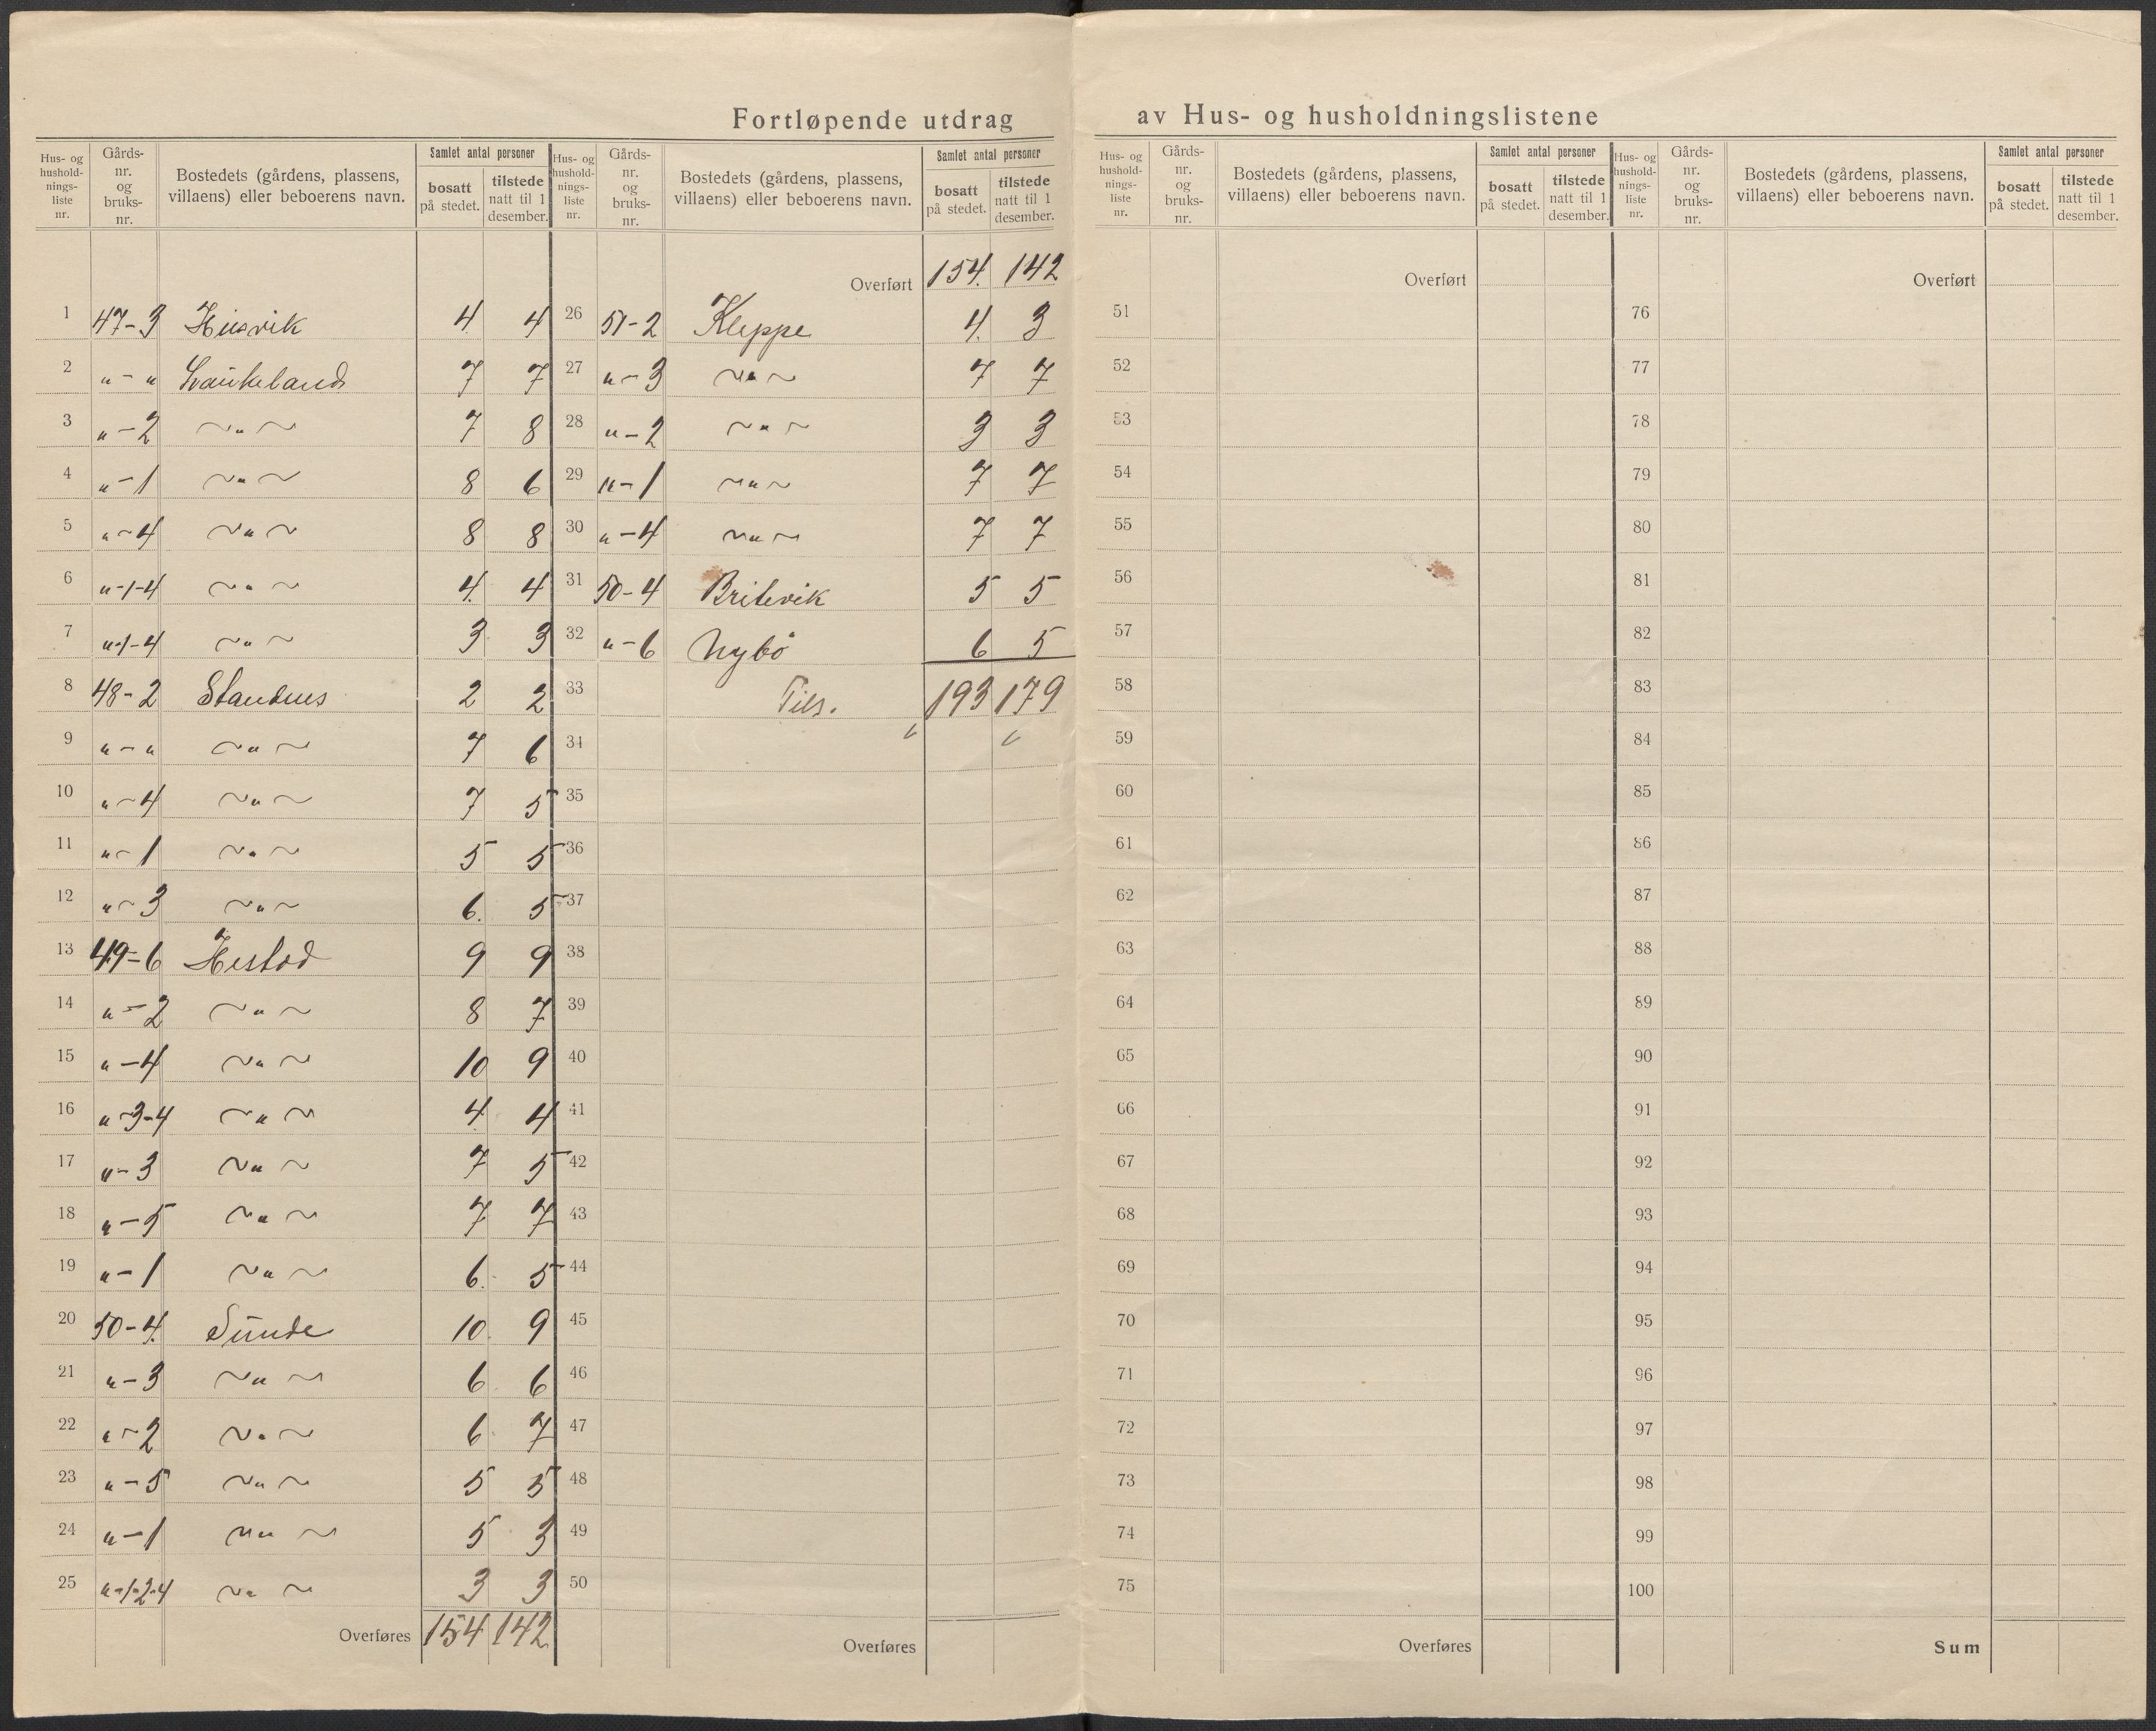 Fortløpende utdrag av Hus- og husholdningslistene
Hus- og hushold-nings-liste nr. Gårds-nr. og bruks-nr. Bostedets (gårdens, plassens, villaens) eller beboerens navn. Samlet antal personer bosatt på stedet. tilstede natt til 1 desember.
1 47-3 Husvik 4 4
2 " - " Laukeland 7 7
3 " - 2 ~"~ 7 8
4 " - 1 ~"~ 8 6
5 " - 4 ~"~ 8 8
6 " -1-4 ~"~ 4 4
7 " -1-4 ~"~ 3 3
8 48-2 Standnes 2 2
9 " - " ~"~ 7 6
10 " - 4 ~"~ 7 5
11 " - 1 ~"~ 5 5
12 " - 3 ~"~ 6 5
13 49-6 Hestad 9 9
14 " - 2 ~"~ 8 7
15 " - 4 ~"~ 10 9
16 " -3-4 ~"~ 4 4
17 " - 3 ~"~ 7 5
18 " - 5 ~"~ 7 7
19 " - 1 ~"~ 6 5
20 50-4 Sunde 10 9
21 " - 3 ~"~ 6 6
22 " - 2 ~"~ 6 7
23 " - 5 ~"~ 5 5
24 " - 1 ~"~ 5 3
25 " -1-2-4 ~"~ 3 3
Overføres 154 142
Hus- og hushold-nings-liste nr. Gårds-nr. og bruks-nr. Bostedets (gårdens, plassens, villaens) eller beboerens navn. Samlet antal personer bosatt på stedet. tilstede natt til 1 desember.
Overført 154 142
26 51-2 Kleppe 4 3
27 " - 3 ~"~ 7 7
28 " - 2 ~"~ 3 3
29 " - 1 ~"~ 7 7
30 " - 4 ~"~ 7 7
31 50-4 Britevik 5 5
32 " - 6 Nybö 6 5
33 Tils. 193 179
34
35
36
37
38
39
40
41
42
43
44
45
46
47
48
49
50
Overføres
Hus- og hushold-nings-liste nr. Gårds-nr. og bruks-nr. Bostedets (gårdens, plassens, villaens) eller beboerens navn. Samlet antal personer bosatt på stedet. tilstede natt til 1 desember.
Overført
51
52
53
54
55
56
57
58
59
60
61
62
63
64
65
66
67
68
69
70
71
72
73
74
75
Overføres
Hus- og hushold-nings-liste nr. Gårds-nr. og bruks-nr. Bostedets (gårdens, plassens, villaens) eller beboerens navn. Samlet antal personer bosatt på stedet. tilstede natt til 1 desember.
Overført
76
77
78
79
80
81
82
83
84
85
86
87
88
89
90
91
92
93
94
95
96
97
98
99
100
Sum